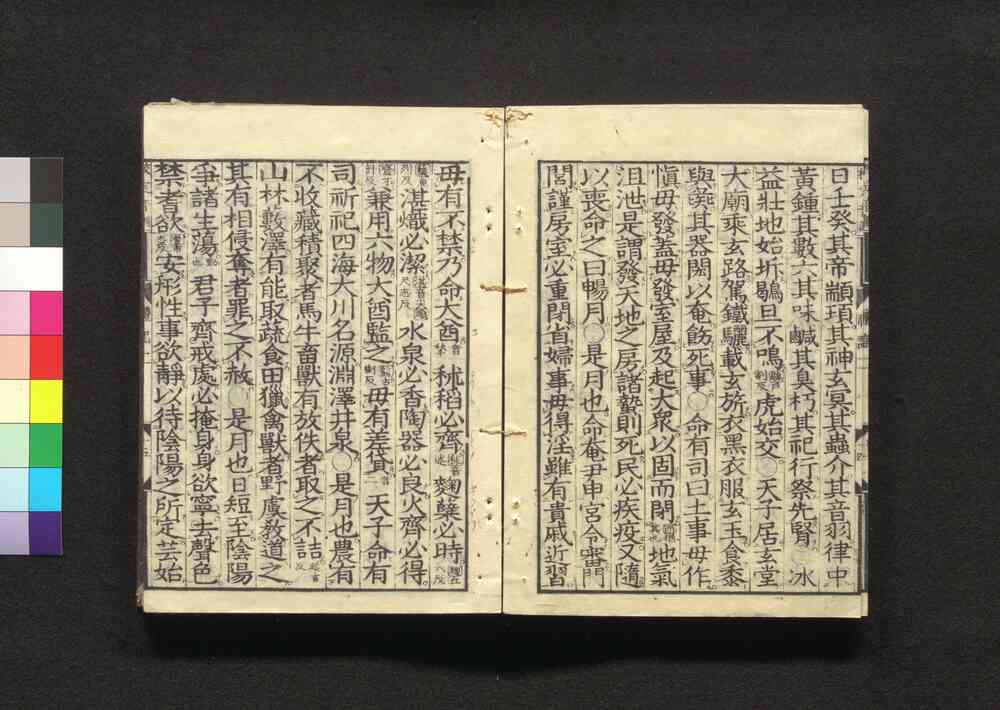 日壬癸其帝顓頊其神玄冥其蟲介其音羽律中
黃鍾其數六其味鹹其臭朽其祀行祭先腎○冰
益壯地始坼鶡旦不鳴虎始交○天子居玄堂
大廟乘玄路駕鐵驪載玄旂衣黑衣服玄玉食黍
與彘其器閎以奄飭死事○命有司曰土事毋作
愼毋發蓋毋發室屋及起大衆以固而閉地氣
沮泄是謂發天地之房諸蟄則死民必疾疫又隨
以喪命之曰暢月○是月也命奄尹申宮令審門
閭謹房室必重閉省婦事毋得淫雖有貴戚近習
毋有不禁乃命大酋秫稻必齊麴糵必時
湛熾必潔水泉必香陶器必良火齊必得
兼用六物大酋監之毋有差貣天子命有
司祈祀四海大川名源淵澤井泉○是月也農有
不收藏積聚者馬牛畜獸有放佚者取之不詰
山林藪澤有能取蔬食田獵禽獸者野虞敎道之
其有相侵奪者罪之不赦○是月也日短至陰陽
爭諸生蕩君子齊戒處必掩身身欲寧去聲色
禁耆欲安形性事欲靜以待陰陽之所定芸始